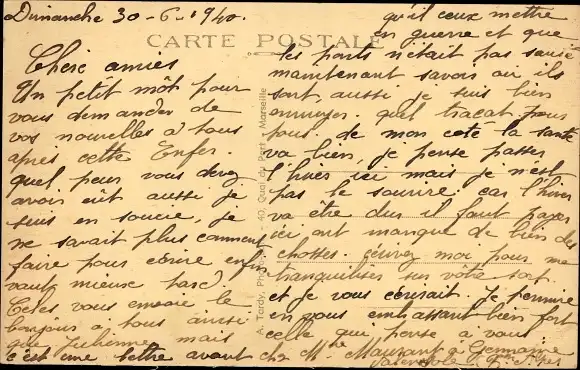 Dimanche 30-6-1940.
CARTE POSTALE
Chère amies
Un petit môt pour
vous demander de
vos nouvelles a tous
après cette Enfer.
quel peur vous devez
avoir eût aussi je
suis en soucie, je
ne savait plus comment
faire pour écrire enfin
vaut mieux tard.
vous envoie le
bonjour a tous ainsi
que Julienne, mais
c'est une lettre avant
A. Tardy, 40, Quai du Port - Marseille
qu'il ceux mettre
en guerre et que
les ponts n'était pas
maintenant savoir où ils
sont, aussi je suis bien
ennuyer, quel tracat pour
nous, de mon coté la santé
va bien, je pense passer
l'hiver ici mais je n'est
pas le sourire car l'hiver
va être dur il faut payer
ici ont manque de bien des
chosses. écrivez moi pour me
tranquiliser sur vôtre sort.
et je vous écrirait. Je termine
en vous embrassant bien fort
celle qui pense a vous
chz Mme à Germaine